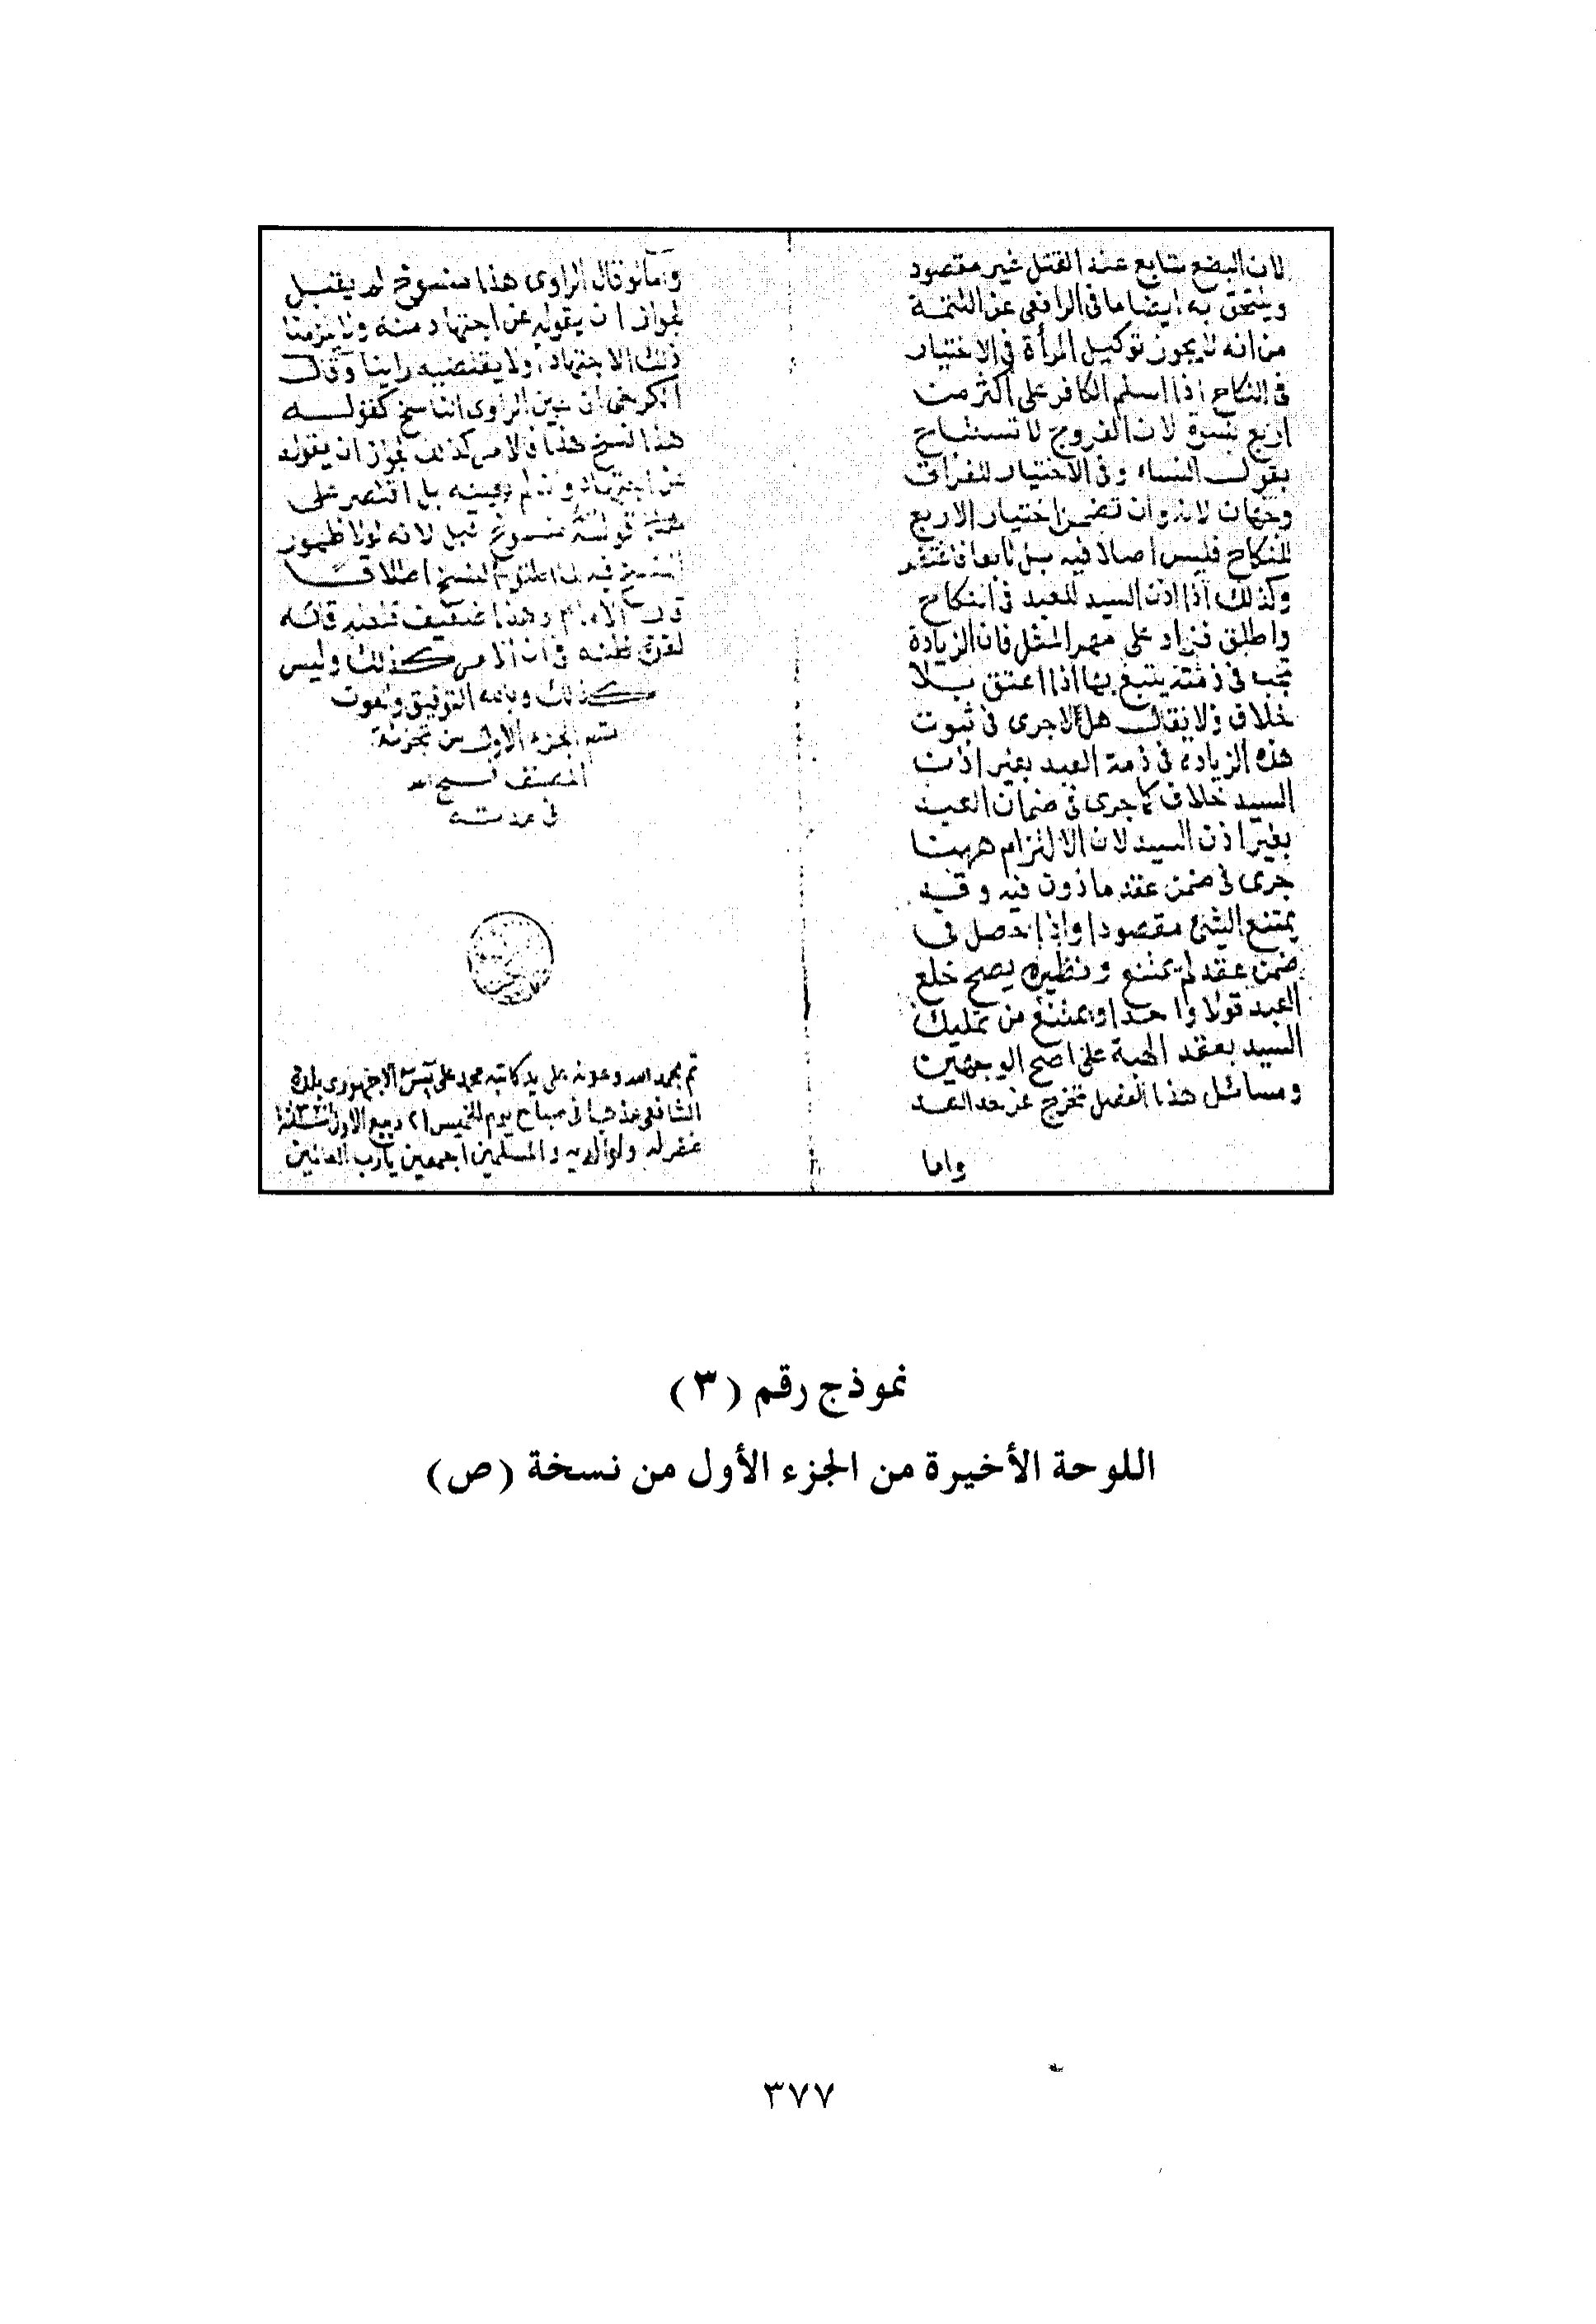 لان البضع بتابع عند القتل غير مقصود
ويلتحق به ايضا ما فى الرافعى عن التتمة
من انه لا يجوز توكيل المرأة فى الاختيار
فى النكاح اذا اسلم الكافر على اكثر من
اربع نسوة لان الفروج لا تستباح
بقول النساء وفى الاختيار للفراق
وجهان لانه وان تضمن اختيار الاربع
للنكاح فليس اصلا فيه بل تابعا فاغتفر
وكذلك اذا اذن السيد للعبد فى النكاح
واطلق فزاد على مهر المثل فان الزيادة
تجب فى ذمته يتبع بها اذا اعتق بلا
خلاف ولا يقال هلا جرى فى ثبوت
هذه الزيادة فى ذمة العبد بغير اذن
السيد خلاف كما جرى فى ضمان العبد
بغير اذن السيد لان الالتزام ههنا
جرى فى ضمن عقد ماذون فيه وقد
يمتنع الشئ مقصودا واذا حصل فى
ضمن عقد لم يمتنع ونظيره يصح خلع
العبد قولا واحدا ويمتنع من تمليك
السيد بعقد الهبة على اصح الوجهين
ومسائل هذا الفصل تخرج عن حد العد
واما
واما لو قال الراوى هذا منسوخ لم يقبل
لجواز ان يقوله عن اجتهاد منه ولا يلزمنا
ذلك الاجتهاد ولا يقتضيه راينا وقال
الكرخى ان عين الراوى الناسخ كقوله
هذا نسخ هذا فالامر كذلك لجواز ان يقوله
عن اجتهاد وان لم يعينه بل اقتصر على
قوله منسوخ قبل لانه لولا ظهور
النسخ فيه لما اطلق النسخ اطلاقا
قال الامام وهذا ضعيف فلعله قاله
لقوة ظنه فى ان الامر كذلك وليس
كذلك وبالله التوفيق والعون
تم الجزء الاول من تجزئة
المصنف فسح الله
فى مدته
تم بحمد الله وعونه على يد كاتبه محمد على الاجهورى بلدة
الشافعى مذهبا فى صباح يوم الخميس ٢١ ربيع الاول
غفر له ولوالديه والمسلمين اجمعين يارب العالمين
نموذج رقم (٣)
اللوحة الأخيرة من الجزء الأول من نسخة (ص)
٣٧٧